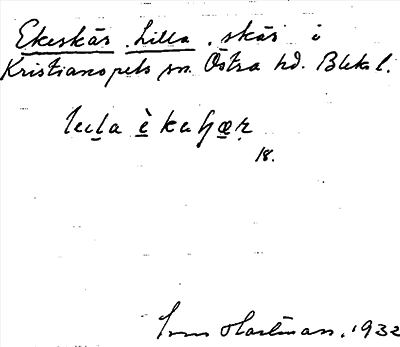 Ekeskär, Lilla, skär i
Kristianopels sn. Östra hd. Blek l.
lıla è kaʃær
18.
Hartman, 1932